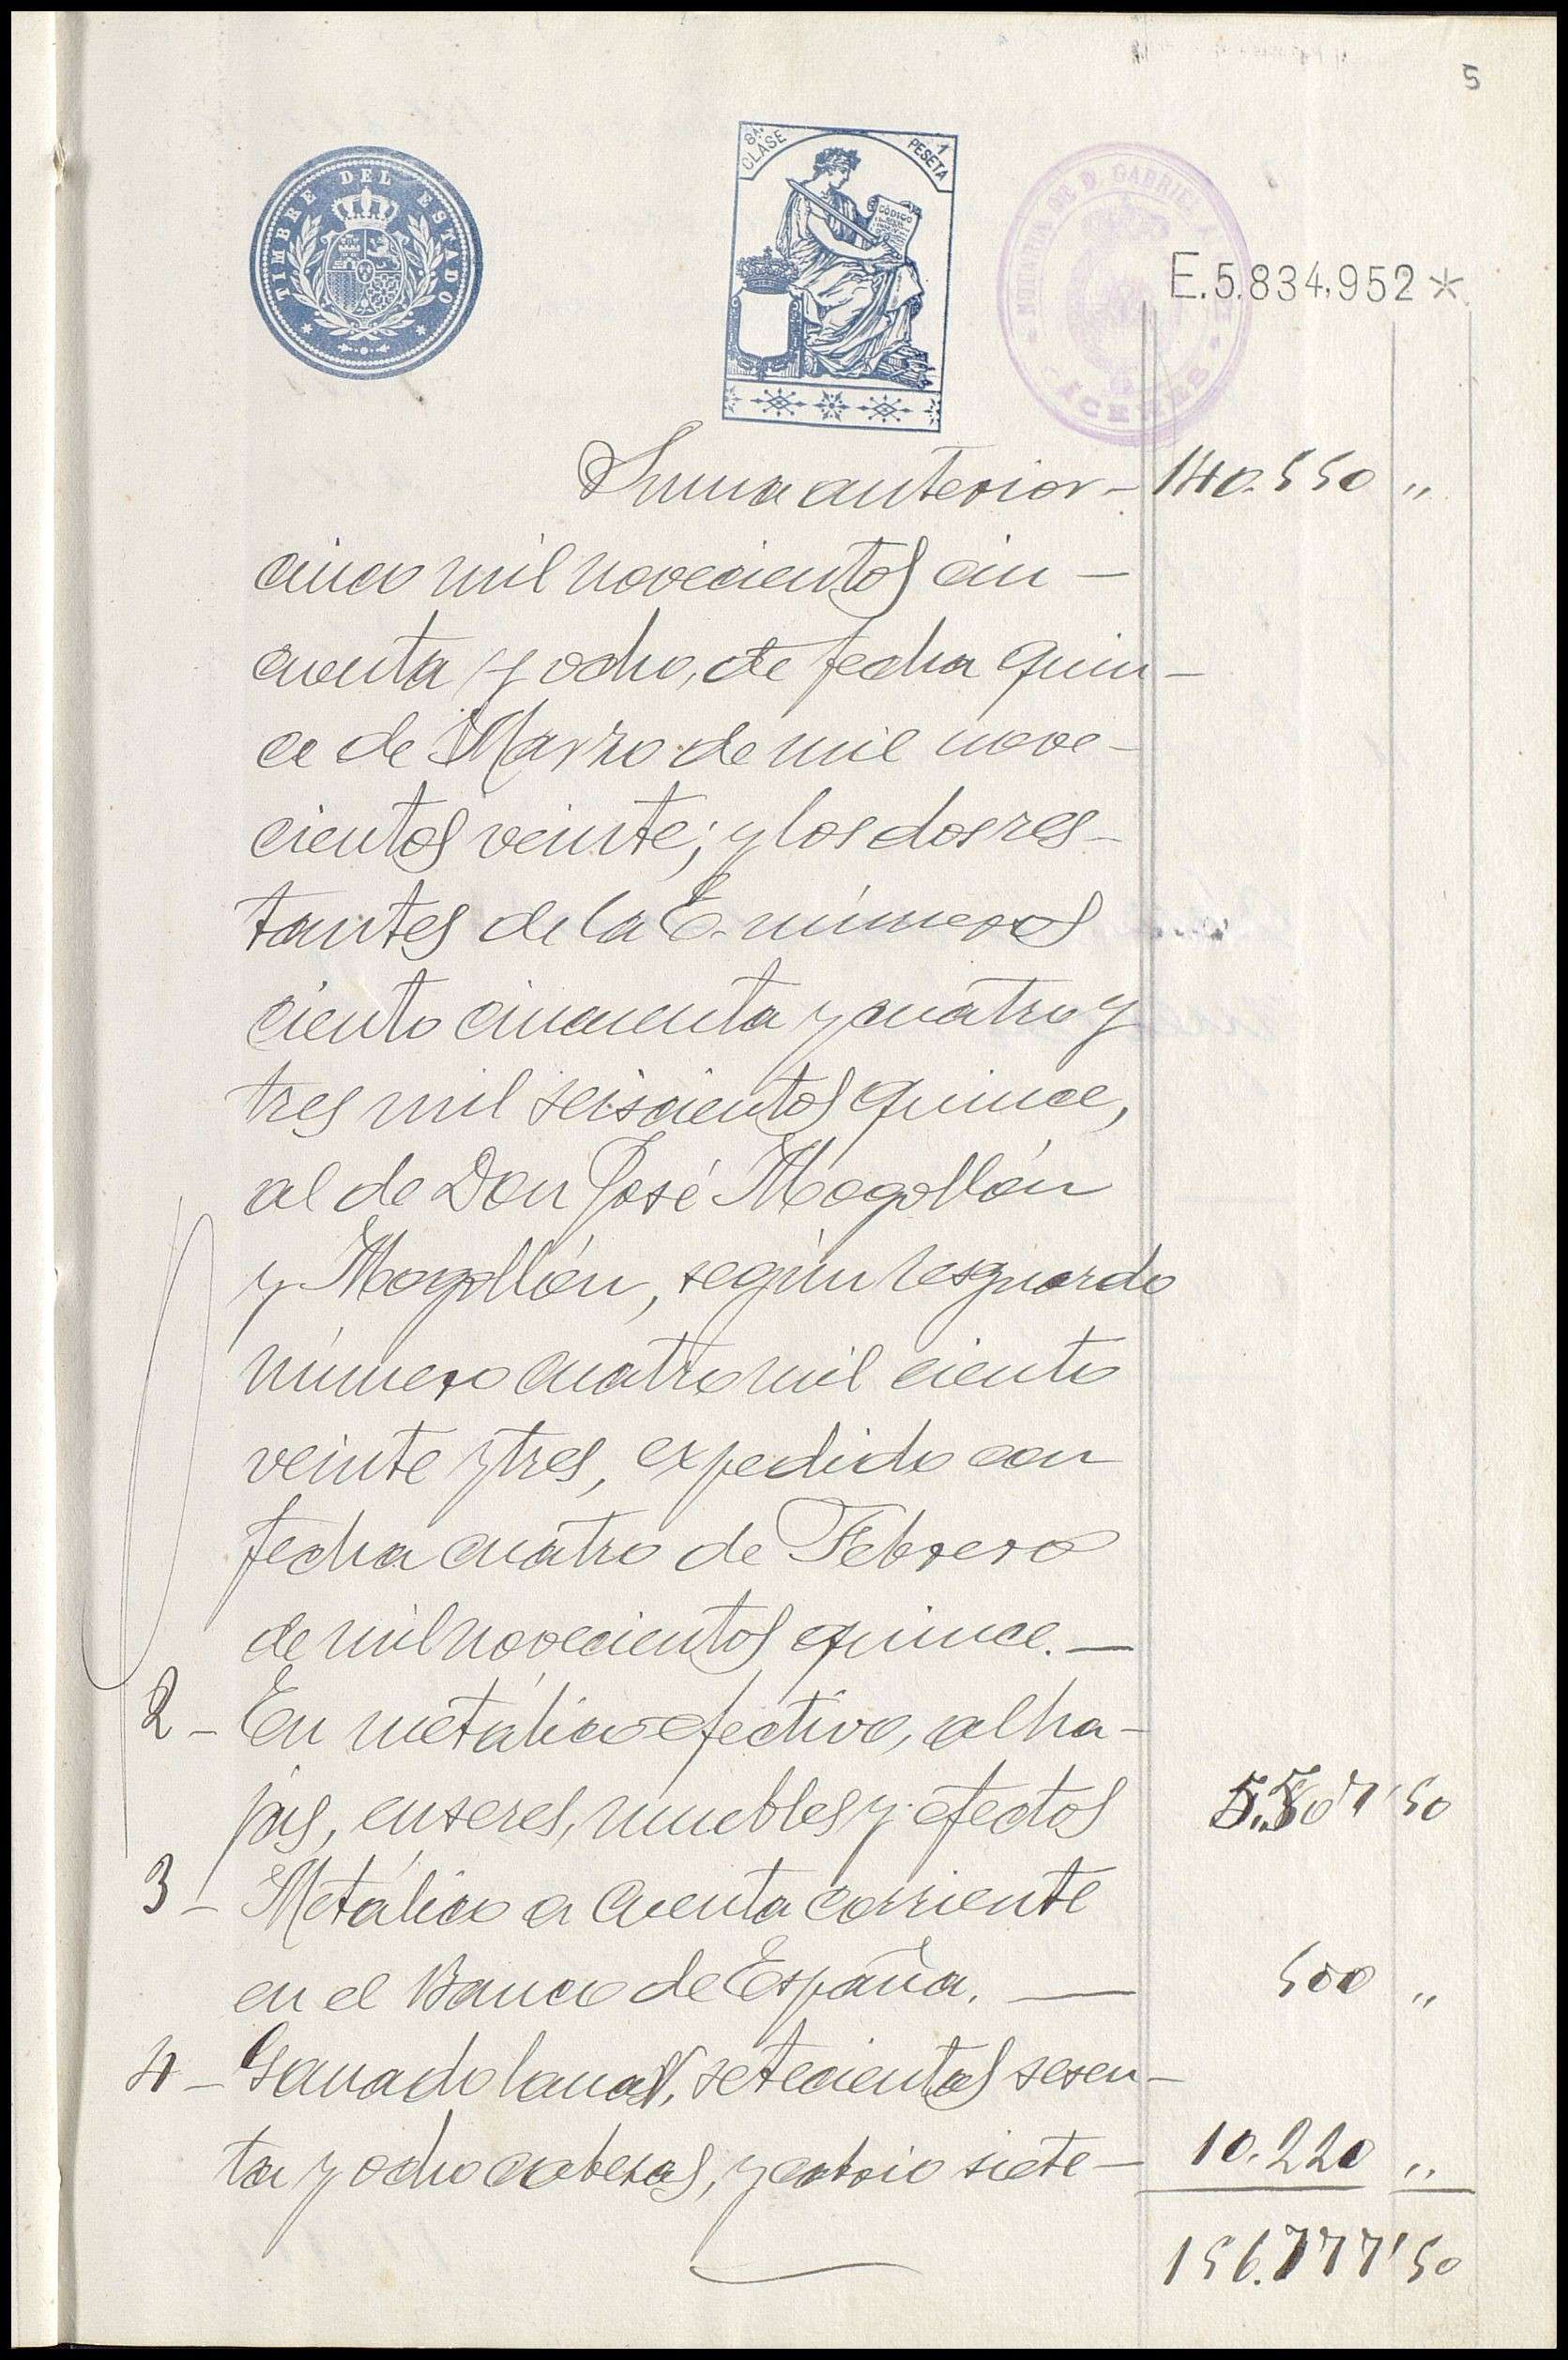 5
TIMBRE DEL ESTADO
8ª CLASE
1 PESETA
CÓDIGO
DE D. GABRIEL
E.5.834,952*
Suma anterior - 140.550 "
cinco mil novecientos cin-
cuenta y ocho, de fecha quin-
ce de Marzo de mil nove-
cientos veinte; y los dos res-
tantes de la E. números
ciento cincuenta y cuatro y
tres mil seiscientos quince,
al de Don José Mogollón
y Mogollón, según resguardo
número cuatro mil ciento
veinte y tres, expedido con
fecha cuatro de Febrero
de mil novecientos quince.-
2 - En metálico efectivo, alha-
jas, enseres, muebles y efectos 5.507'50
3 - Metálico a cuenta corriente
en el Banco de España. - 500 "
4 - Ganado lanar, setecientas sesen-
ta y ocho cabezas, y cabrio siete - 10.220 "
156.777'50